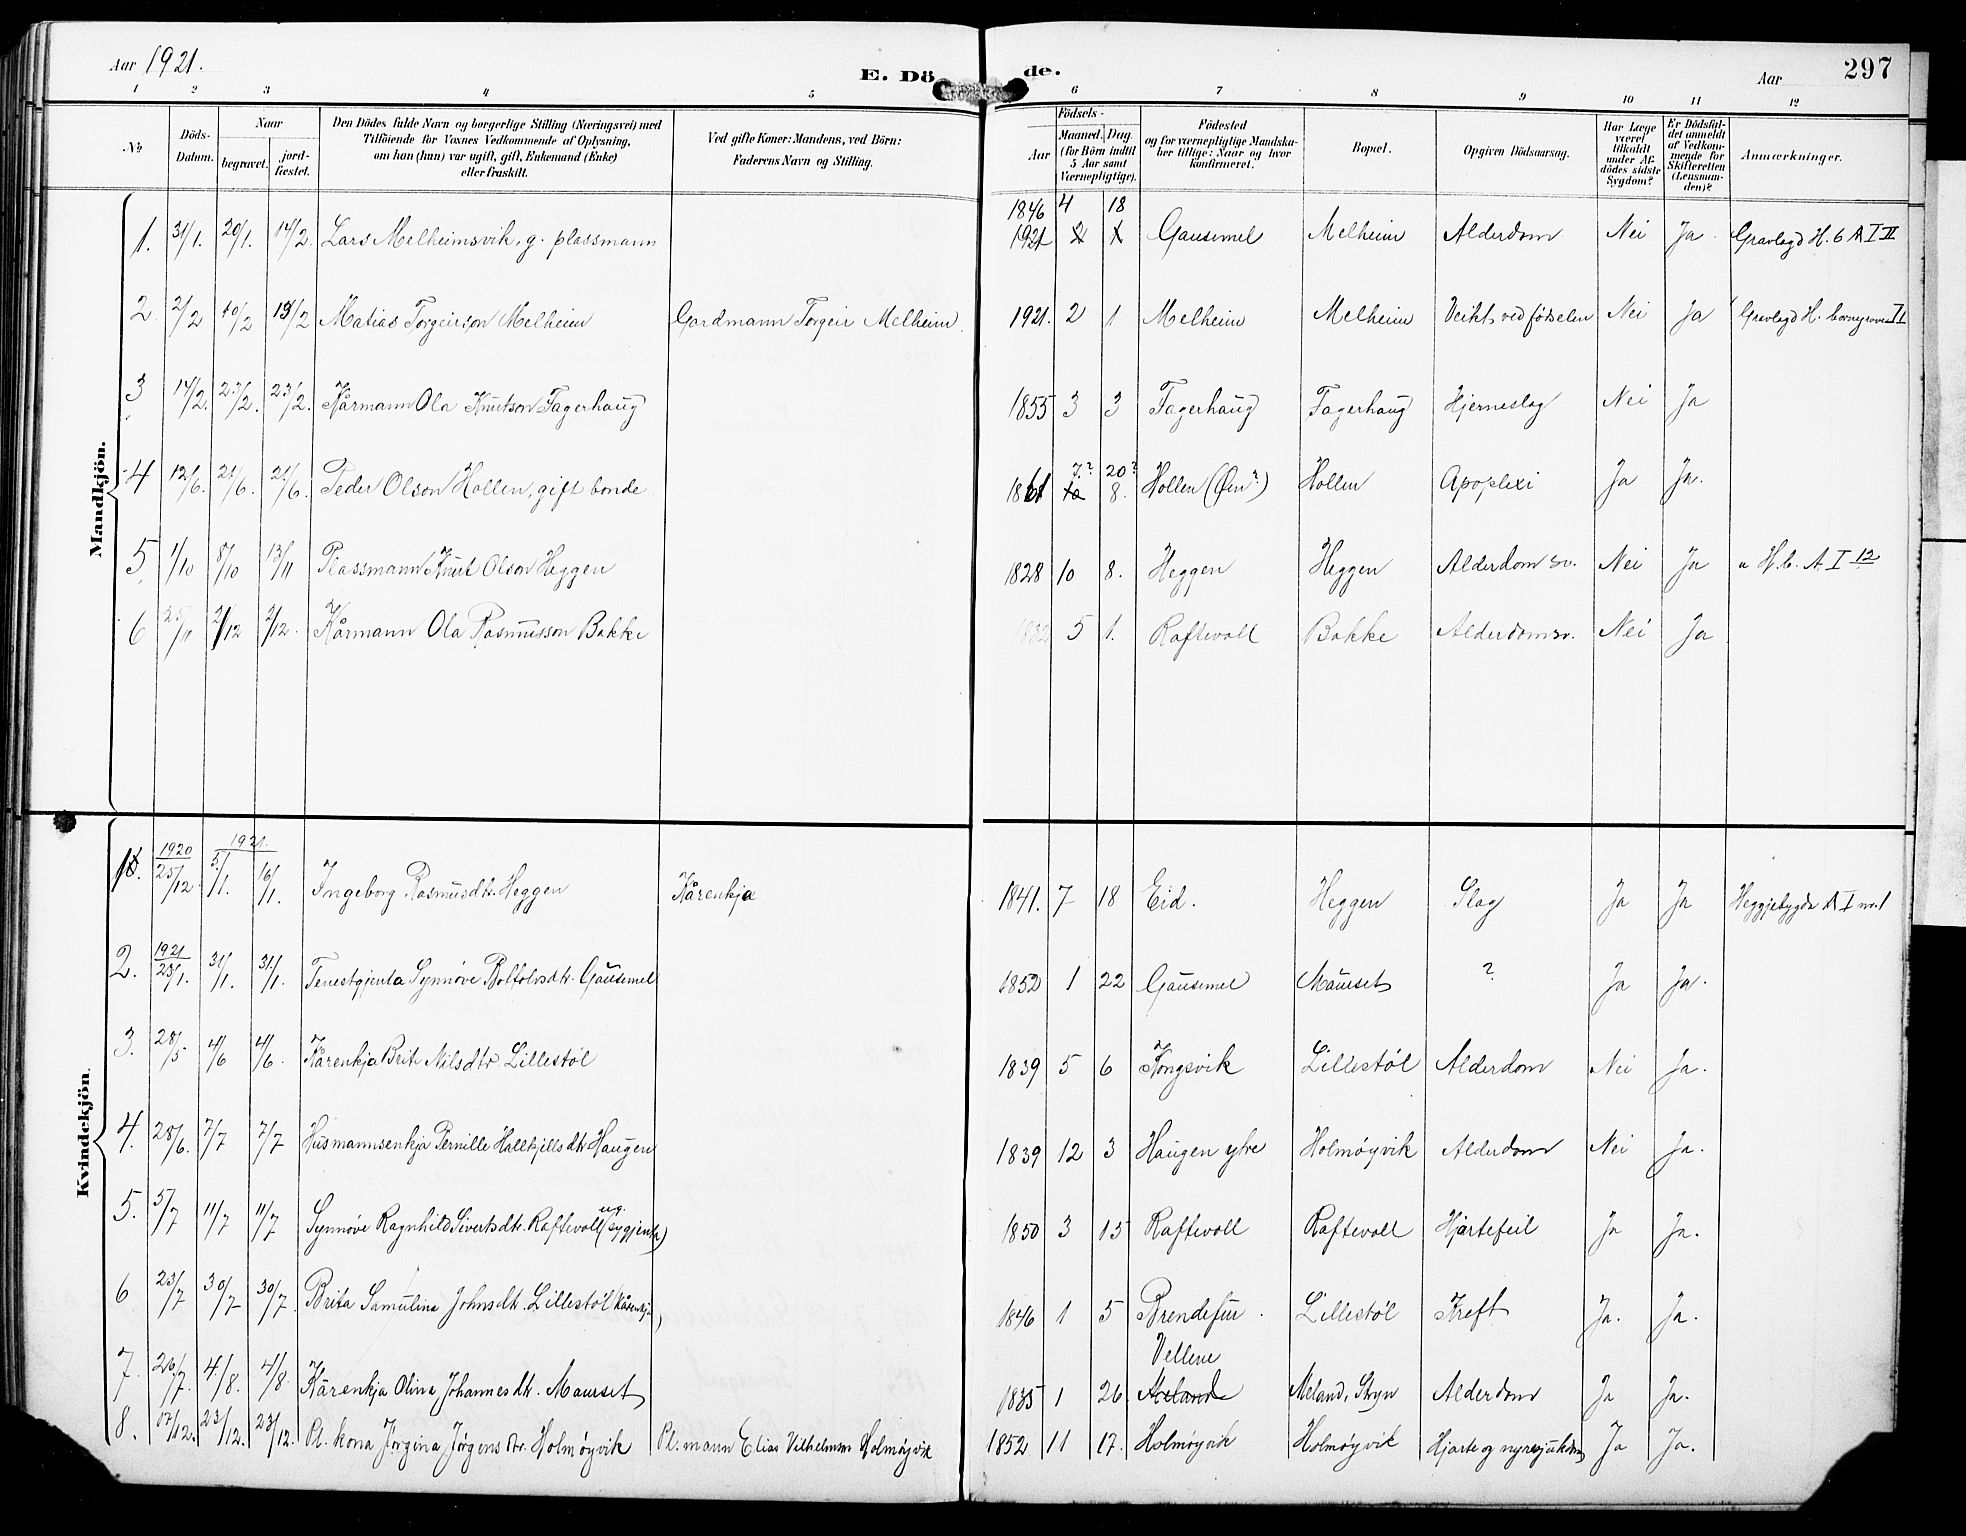 Aar 1921.
E. Dö de.
Aar
297
1 2 3 4 5 6 7 8 9 10 11 12
No
Döds-Datum.
Naar
begravet.
jord-fæstet.
Den Dödes fulde Navn og borgerlige Stilling (Næringsvei) med
Tilföiende for Voxnes Vedkommende af Oplysning,
om han (hun) var ugift, gift, Enkemand (Enke)
eller fraskilt.
Ved gifte Koner: Mandens, ved Börn:
Faderens Navn og Stilling.
Födsels-
Aar
Maaned.
Dag.
(for Börn indtil
5 Aar samt
Værnepligtige).
Födested
og for værnepligtige Mandska-
ber tillige: Naar og hvor
konfirmeret.
Bopæl.
Opgiven Dödsaarsag.
Har Læge
været
tilkaldt
under Af-
dödes sidste
Sygdom?
Er Dödsfal-
det anmeldt
af Vedkom-
mende for
Skifteretten
(Lensman-
den)?
Anmærkninger.
Mandkjön.
1. 31/1. 20/1. 14/2. Lars Melheimsvik, g. plassmann 1846 4 18 1921 Gausemel Melheim Alderdom Nei Ja Gravlagd H. b A I II
2 2/2 10/2 19/2 Matias Torgeirson Melheim Gardmann Torgeir Melheim 1921. 2 1 Melheim Melheim Veikt, ved fødselen Nei Ja Gravlagd H.
3 14/2. 23/2. 23/2. Kårmann Ola Knutson Fagerhaug 1855 3 3 Fagerhaug Fagerhaug Hjerneslag Nei Ja
4 12/6. 21/6. 21/6. Peder Olson Hollen, gift bonde 1861 7? 20? 10 8. Hollen (Øen?) Hollen Apoplexi Ja Ja.
5 1/10 8/10 13/11 Plassmann Knut Olson Heggen 1828 10 8. Heggen Heggen Alderdom sv. Nei Ja " H. b. A I 12
6 25/11 2/12 2/12. Kårmann Ola Rasmusson Bakke 1832 5 1. Raftevoll Bakke Alderdomsv. Nei Ja
Kvindekjön.
1. 1920 25/12. 1921. 5/1. 16/1. Ingeborg Rasmusdtr. Heggen Kårenkja 1841. 7 18 Eid. Heggen Slag Ja Ja Heggjebygda A I nr. 1
2. 1921 23/1. 31/1. 31/1. Tenestgjenta Synnøve Botfolvsdtr. Gausemel 1852 1 22 Gausemel Maurset ? Ja Ja.
3. 28/5 4/6 4/6. Kårenkja Brit Nilsdtr. Lillestøl 1839 5 6 Kongsvik Lillestøl Alderdom Nei Ja.
4. 28/6. 7/7 7/7 Husmannsenkja Pernille Hallkjellsdtr Haugen 1839 12 3 Haugen ytre Holmøyvik Alderdom Nei Ja.
5. 5/7 11/7 11/7 Synnøve Ragnhild Sivertsdtr. Raftevoll (ug. sygjenta) 1850 3 15 Raftevoll Raftevoll Hjartefeil Ja Ja.
6 23/7 30/7 30/7. Brita Samuline Johnsdtr. Lillestøl (kårenkja) 1846 1 5 Brendefur Lillestøl Kreft Ja. Ja.
7. 26/7. 4/8. 4/8 Kårenkja Olina Johannesdtr. Maurset 1835 1 26 Vellene Meland Meland, Stryn Alderdom Ja Ja.
8. 17/12. 23/12. 23/12. Pl. kona Jørgina Jørgensdtr. Holmøyvik Pl. mann Elias Vilhelmsn Holmøyvik 1852 11 17. Holmøyvik Holmøyvik Hjarte og nyresjukdom Ja Ja.